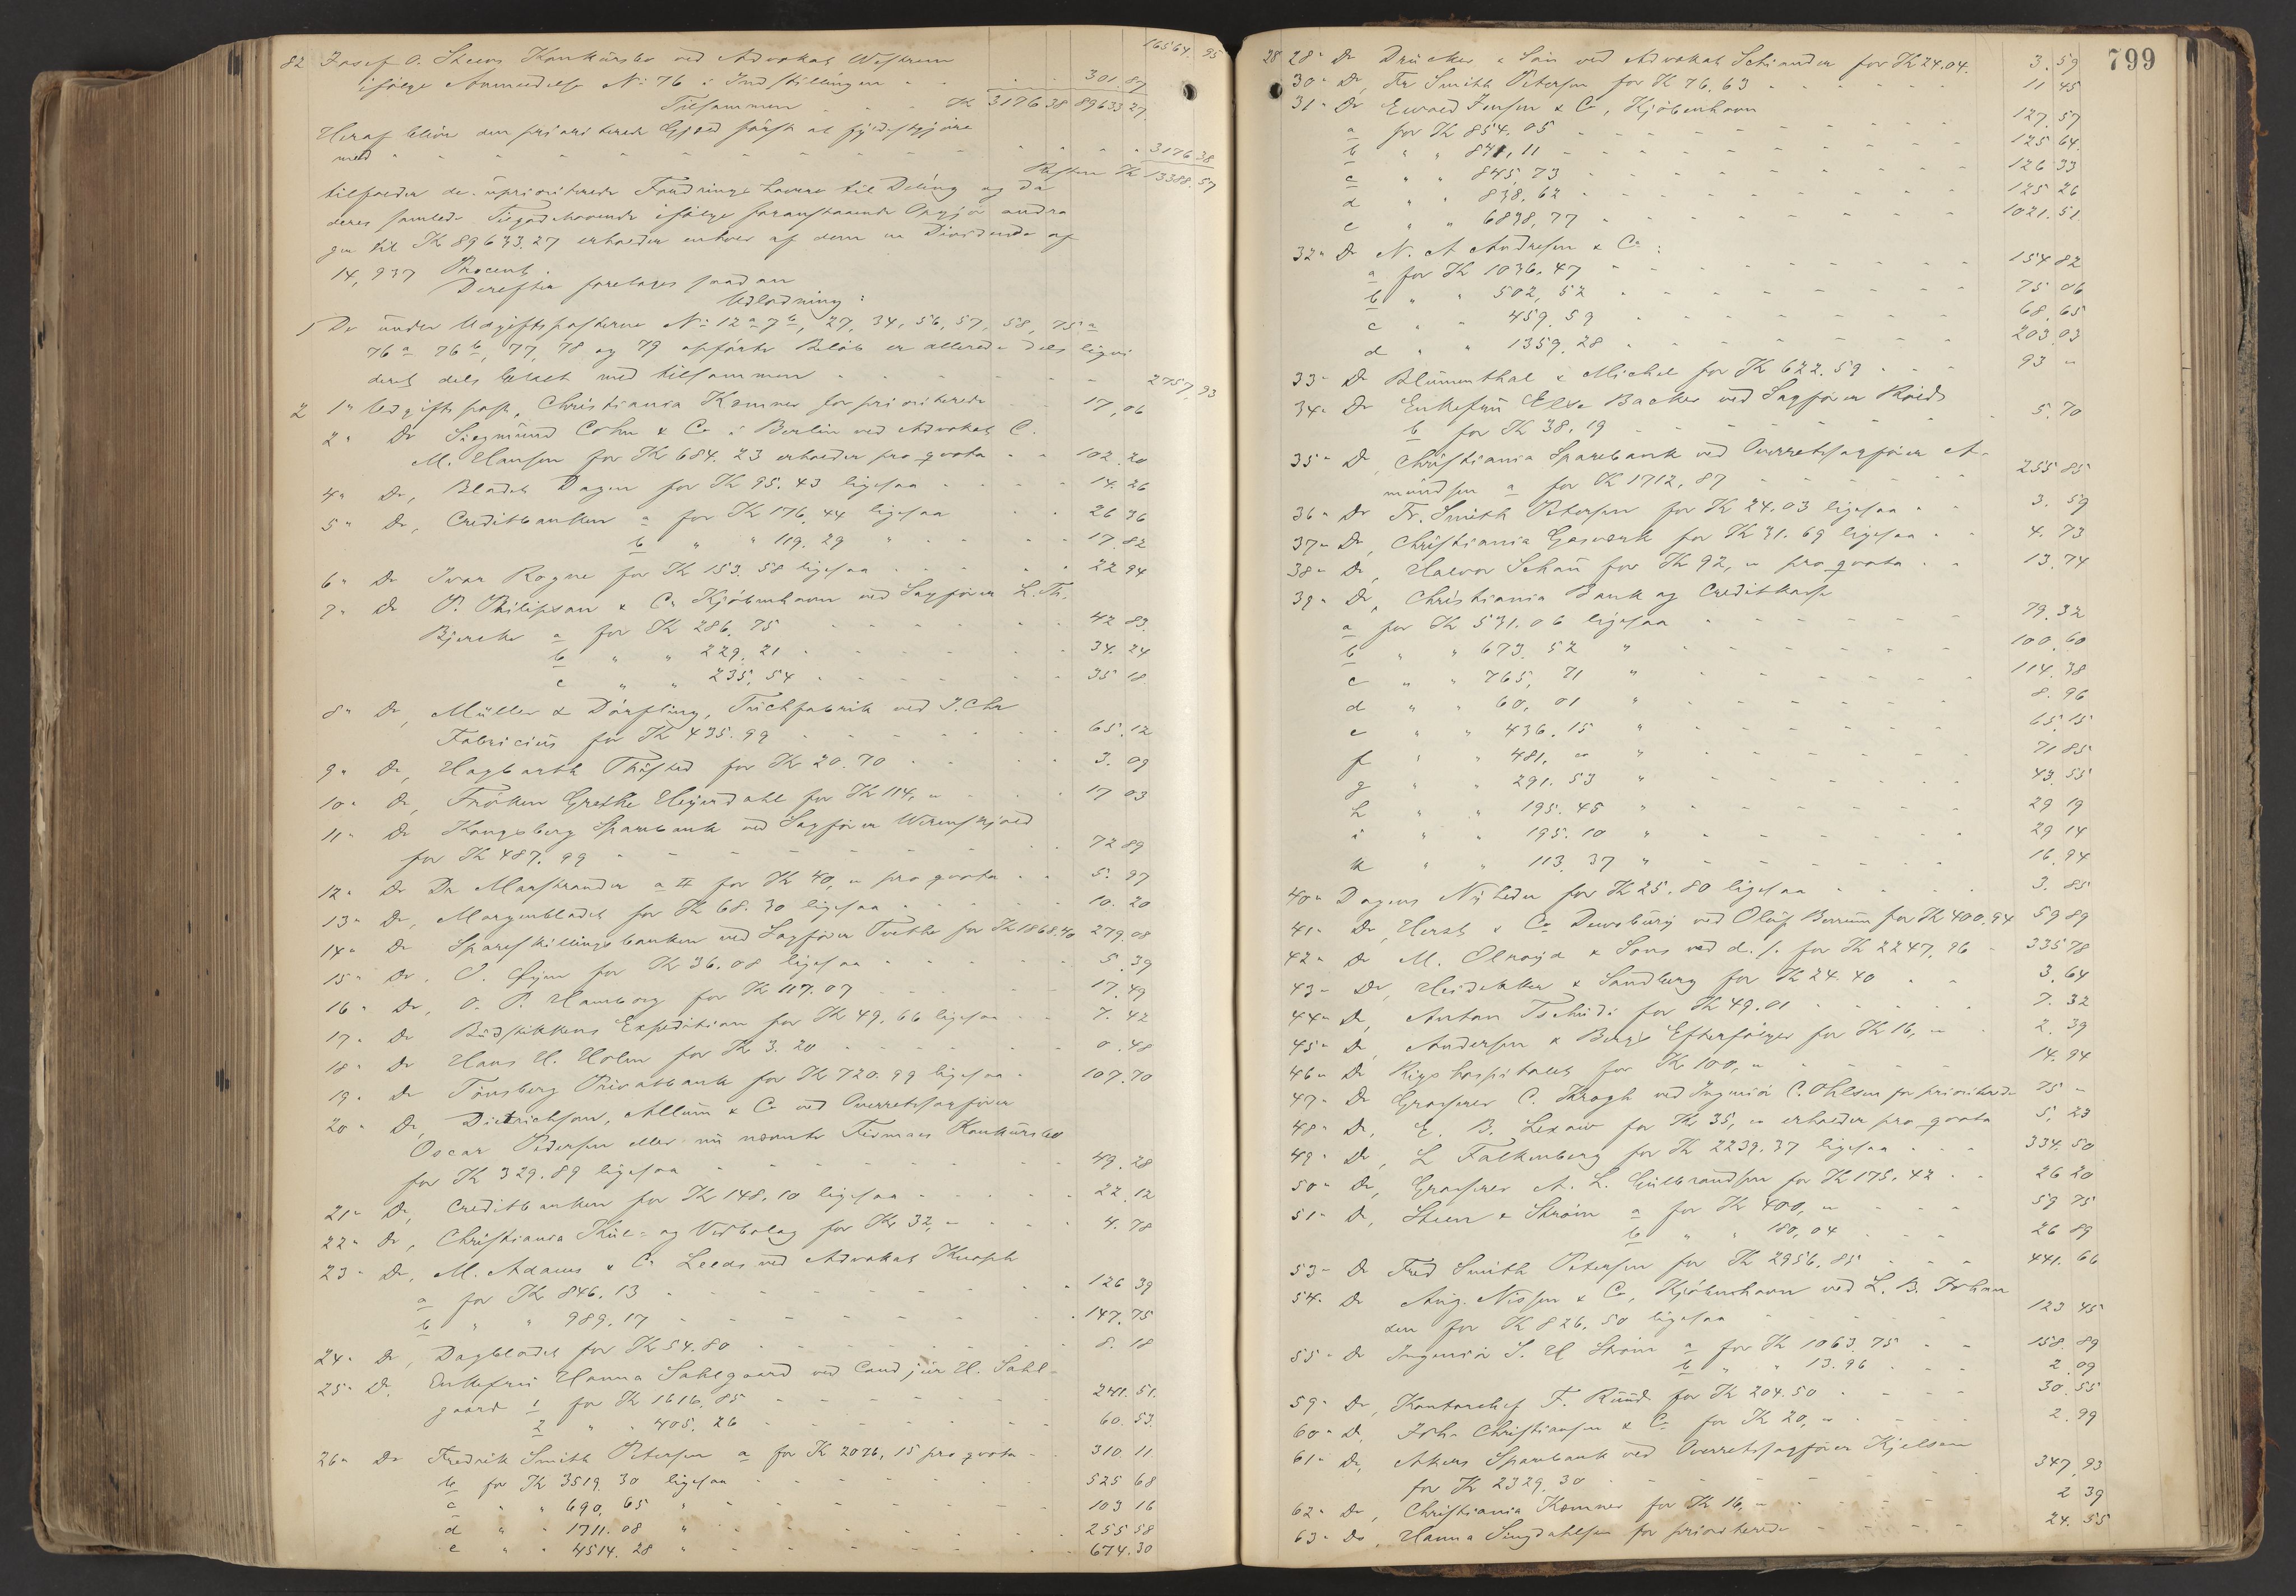 16564. 95
82 Josef O. Steens Konkursbo ved Advokat
ifølge Anmeldelse No 76 i Indstillingen - - 301. 87
Tilsammen - - Kr 3176 38 89633 27.
Heraf bliver den prioriterede Gjæld først at fyldestgjøre
med - - - - 3176 38
Resten Kr 13388. 57
tilfalder de upriviterede Fordringshavere til Deling og da
deres samlede Tilgodehavende ifølge foranstaaende Opgjør andra
ger til Kr 89633.27 erholder enhver af dem en Dividende af
14,937 Procent.
Derefter foretages saadan
Udlodning:
1 De under Udgiftsposterne No 12 a 7 b, 27, 34, 56, 57, 58, 75 a
76 a 76 b, 77, 78 og 79 opførte Beløb er allerede dels liqvi
deret dels lukket med tilsammen - - - 2757, 93
2 1" Udgiftspost, Christiania Kæmner for prioriterede - - 17,06
2" Do Siegmund Cohn & Co i Berlin ved Advokat C.
M. Hansen for Kr 684. 23 erholder pro qvota - - 102. 20
4" Do, Bladet Dagen for Kr 95. 43 ligesaa - - - 14. 26
5" Do, Creditbanken a for Kr 176, 44 ligesaa - - 26 36
b " " 119. 29 " - - - 17. 82
6" Do Ivar Rogne for Kr 153. 58 ligesaa - - - 22 94
7" Do P. Philipson & Co Kjøbenhavn ved Sagfører L. Th.
Bjercke a for Kr 286. 75 - - - 42 83.
b " " 229. 21 - - - 34. 24
c " " 235, 54 - - - 35 18.
8" Do, Müller & Dörfling, Trichfabrik ved J. Chr
Fabricius for Kr 435. 99 - - - 65. 12
9" Do, Hagbarth Thrysted for Kr 20. 70 - - - 3. 09
10" Do, Frøken Grethe Heyerdahl for Kr 114, " - - 17 03
11" Do Kongsberg Sparebank ved Sagfører Werenskjold
for Kr 487. 99 - - - 72 89
12" Do Dr Marstrander a II for Kr 40, " pro qvota - - 5. 97
13" Do, Morgenbladet for Kr 68. 30 ligesaa - - - 10. 20
14" Do Spareskillingsbanken ved Sagfører Tvethe for Kr 1868.40 279.08
15" Do. O. Øyen for Kr 36. 08 ligesaa - - - 5. 39
16" Do, O. P. Hamborg for Kr 117. 07 - - - 17. 49
17" Do Budstikkens Expedition for Kr 49, 66 ligesaa - - 7. 42
18" Do Hans H. Holm for Kr 3. 20 - - - 0. 48
19" Do Tønsberg Privatbank for Kr 720. 99 ligesaa - 107. 70
20" Do, Dietrichson, Allum & Co ved Overretssagfører
Oscar Pedersen eller nu nævnte Firmaes Konkursbo
for Kr 329. 89 ligesaa - - - 49. 28
21" Do, Creditbanken for Kr 148. 10 ligesaa - - - 22. 12
22" Do, Christiania Kul- og Vedbolag for Kr 32, " - - 4. 78
23" Do, M. Adams & Co Leeds ved Advokat Knoph
a for Kr 846. 13 - - - 126 39
b " " 989. 17 - - - 147. 75
24" Do, Dagbladet for Kr 54. 80 - - - 8. 18
25" Do. Enkefru Hanna Sahlgaard ved Cand jur H. Sahl-
gaard 1 for Kr 1616. 85 - - - 241. 51.
2 " " 405. 26 - - - 60. 53.
26" Do Fredrik Smith Petersen a for Kr 2076, 15 pro qvota - - 310. 11.
b for Kr 3519. 30 ligesaa - - - 525 68
c " " 690, 65 " - - - 103 16
d " " 1711. 08 " - - - 255 58
e " " 4514. 28 " - - - 674. 30
799
28 28" Do Drucker & Søn ved Advokat Schiander for Kr 24.04. 3. 59
30" Do, Fr Smith Petersen for Kr 76. 63 - - - 11 45
31" Do Ewald Jensen & Co, Kjøbenhavn
a for Kr 854. 05 - - - 127. 57
b " " 841, 11 - - - 125 64.
c " " 845, 73 - - - 126 33
d " " 838, 62 - - - 125 26
e " " 6838, 77 - - - 1021. 51.
32" Do N. A Andresen & Co:
a for Kr 1036. 47 - - - 154 82
b " " 502, 52 - - - 75 06
c " " 459. 59 - - - 68. 65
d " " 1359. 28 - - - 203. 03
33" Do Blumenthal & Michel for Kr 622. 59 - - - 93 "
34" Do Enkefru Elise Backer ved Sagfører Roids
b for Kr 38. 19 - - - 5. 70
35" Do, Christiania Sparebank ved Overretssagfører A-
mundsen a for Kr 1712, 87 - - - 255 85
36" Do Fr. Smith Petersen for Kr 24. 03 ligesaa - - 3. 59
37" Do, Christiania Gasværk for Kr 31. 69 ligesaa - - 4. 73
38" Do, Halvor Schou for Kr 92, " pro qvota - - 13. 74
39" Do, Christiania Bank og Creditkasse
a for Kr 531. 06 ligesaa - - - 79. 32
b " " 673. 52 " - - - 100. 60
c " " 765, 71 " - - - 114. 38
d " " 60, 01 " - - - 8. 96
e " " 436. 15 " - - - 65. 15
f " " 481, " " - - - 71 85
g " " 291. 53 " - - - 43. 55
h " " 195. 45 " - - - 29 19
i " " 195. 10 " - - - 29 14
k " " 113. 37 " - - - 16. 94
40" Dagens Nyheder for Kr 25. 80 ligesaa - - - 3. 85
41" Do, Hirst & Co Dewsbury ved Oluf Berrum for Kr 400. 94 59 89
42" Do M. Oldroyd & Sons ved d. s. for Kr 2247, 96 - 335 78
43" Do, Heidekker & Sandberg for Kr 24. 40 - - 3. 64
44" Do, Anton Tschudi for Kr 49. 01 - - - 7. 32
45" Do, Andersen & Bergs Efterfølger for Kr 16, " - 2. 39
46" Do Rigshospitalet for Kr 100, " - - - 14. 94
47" Do Grosserer C. Krogh ved Ingeniør C. Ohlsen for prioriterede 75 "
48" Do, E. B. Lexow for Kr 35, " erholder pro qvota 5, 23
49" Do, L Falkenberg for Kr 2239. 37 ligesaa - - - 334. 50
50" Do, Grosserer A. L. Gulbrandsen for Kr 175. 42 - - 26 20
51" Do, Steen & Strøm a for Kr 400, " - - - 59 75
b " " 180, 04 - - - 26 89
53" Do Fred Smith Petersen for Kr 2956. 85 - - - 441. 66
54" Do Aug. Nissen & Co, Kjøbenhavn ved L. B. Johan
den for Kr 826, 50 ligesaa - - - 123 45
55" Do Ingeniør S. H Strøm a for Kr 1063. 75 - - 158. 89
b " " 13. 96 - - - 2. 09
59" Do, Kontorchef F. Ruud for Kr 204. 50 - - - 30. 55
60" Do, Johs Christiansen & Co for Kr 20, " - - - 2. 99
61" Do, Akers Sparebank ved Overretssagfører Kjelsen
for Kr 2329. 30 - - - 347. 93
62" Do, Christiania Kæmner for Kr 16, " - - - 2 39
63" Do, Hanna Singdahlsen for prioriterede - - - 24. 55